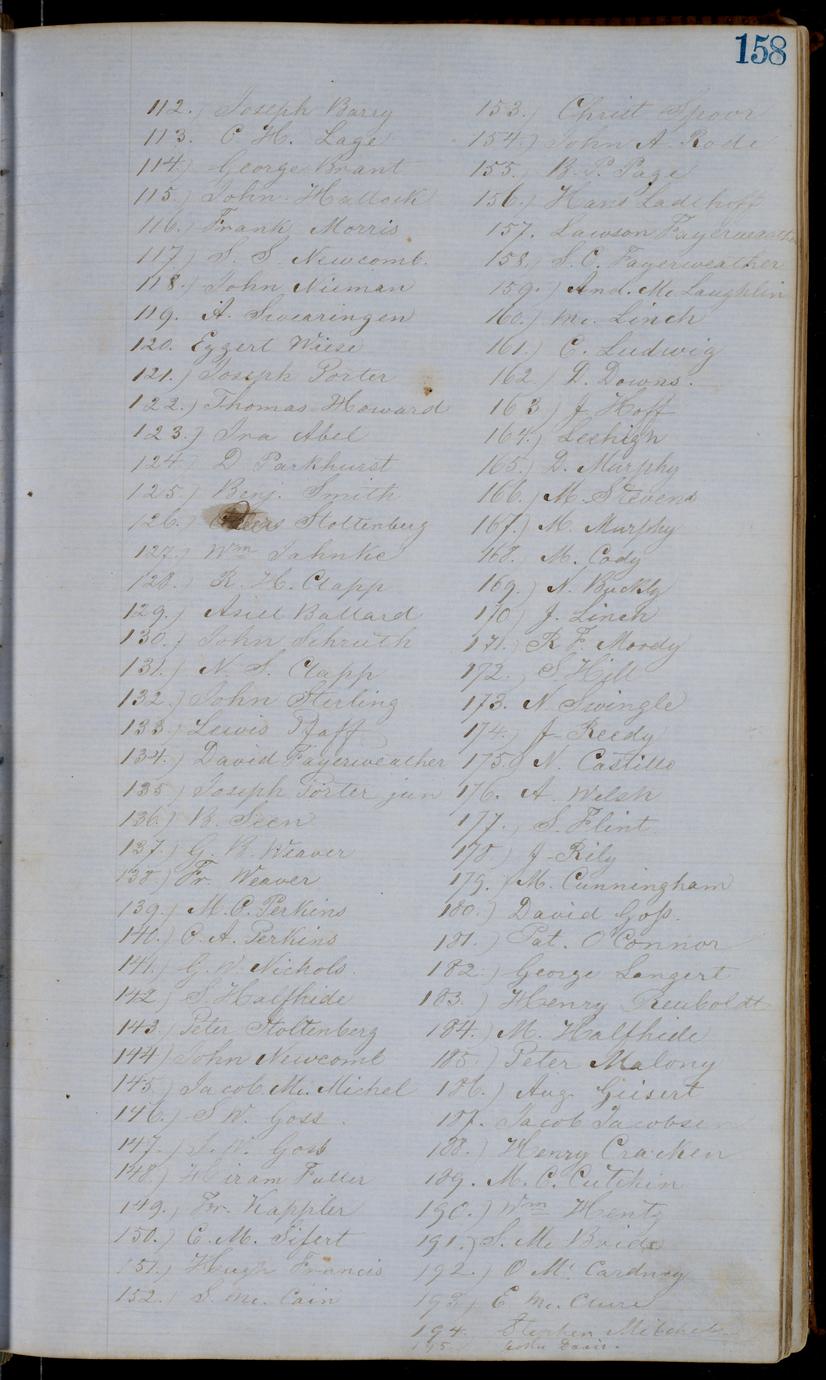 158
112.) Joseph Barry
113. C. H. Lage
114) George Brant
115) John Hallock
116.) Frank Morris
117) S. S. Newcomb.
118.) John Nieman
119. A. Swearingen
120. Eggert Wiese
121.) Joseph Porter
122.) Thomas Howard
123.) Ira Abel
124.) D Parkhurst
125.) Benj. Smith
126.) Stoltenberg
127.) Wm Jahnke
128.) R. H. Clapp
129.) Asiel Ballard
130.) John Schruth
131.) N. S. Clapp
132.) John Sterling
133.) Lewis Pfaff
134.) David Fayerweather
135) Joseph Porter jun
136.) B. Seen
137.) G. B. Weaver
138.) Fr. Weaver
139.) M. C. Perkins
140.) C. A. Perkins
141.) G. W. Nichols.
142.) S. Halfhide
143.) Peter Stoltenberg
144) John Newcomb
145.) Jacob Mc. Michel
146.) S. W. Goss.
147.) S. W. Goss
148.) Hiram Fuller
149.) Fr. Kappler
150.) C. M. Sifert
151.) Hugh Francis
152.) S. Mc. Cain
153.) Christ Spoor
154.) John A. Rode
155.) B. P. Page
156.) Hans Ladehoff
157. Lawson Fayerweather
158.) S. C. Fayerweather
159.) And. Mc Laughlin
160.) Mc. Linch
161.) C. Ludwig
162.) D. Downs.
163.) J. Hoff
164.) Leehigh
165.) D. Murphy
166.) M. Stevens
167.) M. Murphy
168. M. Cody
169.) N. Buckly
170) J. Linch
171.) R F. Moody
172.) S. Hill
173. N. Swingle
174.) J. Reedy
175.) N. Castillo
176. A. Welsh
177.) S. Flint
178.) J. Rily
179. M. Cunningham
180.) David Goss.
181.) Pat. O'Connor
182.) George Langert
183.) Henry Reuboldt
184.) M. Halfhide
185.) Peter Malony
186.) Aug. Geisert
187. Jacob Jacobsen
188.) Henry Cracken
189. M. C. Cutchin
190.) Wm Hentz
191.) S. Mc Bride
192.) O Mc. Cardney
193.) E Mc. Clure
194. Stephen Mitchell
195. John Davis.